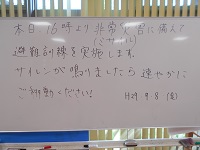 本日、16時より非常災害に備えて
(ミサイル)
避難訓練を実施します。
サイレンが鳴りましたら速やかに
ご移動ください!
H29 9.8 (金)